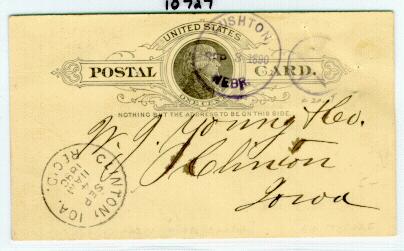 10727
UNITED STATES
RUSHTON
SEP 3 1890
NEBR.
POSTAL CARD.
ONE CENT
NOTHING BUT THE ADDRESS TO BE ON THIS SIDE.
W. J. Young & Co.
Clinton
Iowa
CLINTON, IOA.
SEP
4
11AM
1890
REC'D.